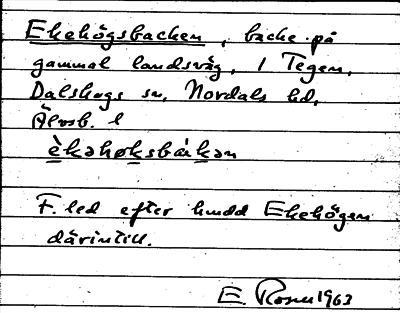 Ekehögsbacken, backe på
gammal landsväg, i Tegen,
Dalskogs sn, Nordals hd,
Älvsb. l
èkəhøksbákən
F. led efter kuddd Ekehögen
därintill.
E. Rosu 1963